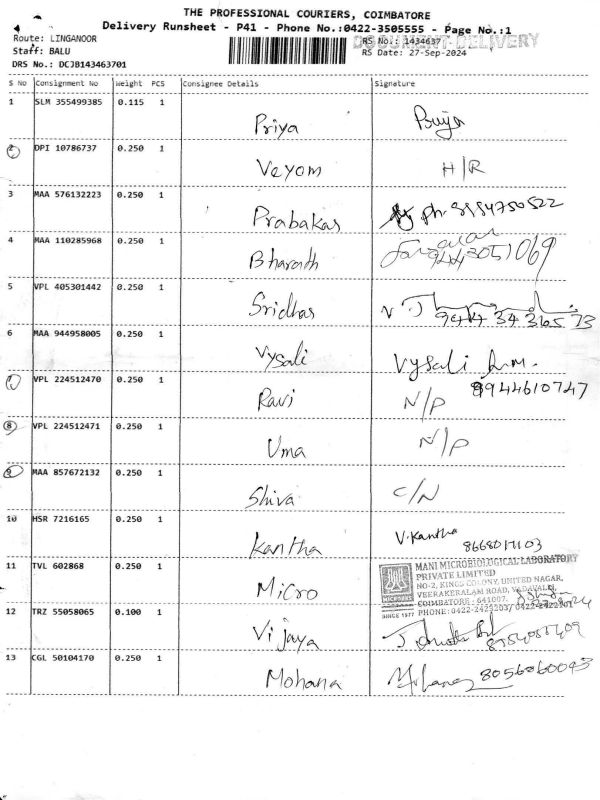 THE PROFESSIONAL COURIERS, COIMBATORE
Delivery Runsheet - P41 - Phone No.:0422-3505555 - Page No.:1
Route: LINGANOOR RS No.: 1434637 DOCUMENT-DELIVERY
Staff: BALU RS Date: 27-Sep-2024
DRS No.: DCJB143463701
S No Consignment No Weight PCS Consignee Details Signature
1 SLM 355499385 0.115 1
Priya Priya
2 DPI 10786737 0.250 1
Veyom H/R
3 MAA 576132223 0.250 1
Prabakar Ph.
4 MAA 110285968 0.250 1
Bharath
5 VPL 405301442 0.250 1
Sridhar
6 MAA 944958005 0.250 1
Vysali Vysali
7 VPL 224512470 0.250 1 8944610747
Ravi N/P
8 VPL 224512471 0.250 1
Uma N/P
9 MAA 857672132 0.250 1
Shiva C/N
10 HSR 7216165 0.250 1
Kantha V.Kantha
11 TVL 602868 0.250 1
Micro
MANI MICROBIOLOGICAL LABORATORY
PRIVATE LIMITED
NO-2, KINGS COLONY, UNITED NAGAR,
VEERAKERALAM ROAD, VADAVALLI,
COIMBATORE - 641007.
SINCE 1977 PHONE: 0422-2425203/
12 TRZ 55058065 0.100 1
Vijaya
13 CGL 50104170 0.250 1
Mohana 8056060093